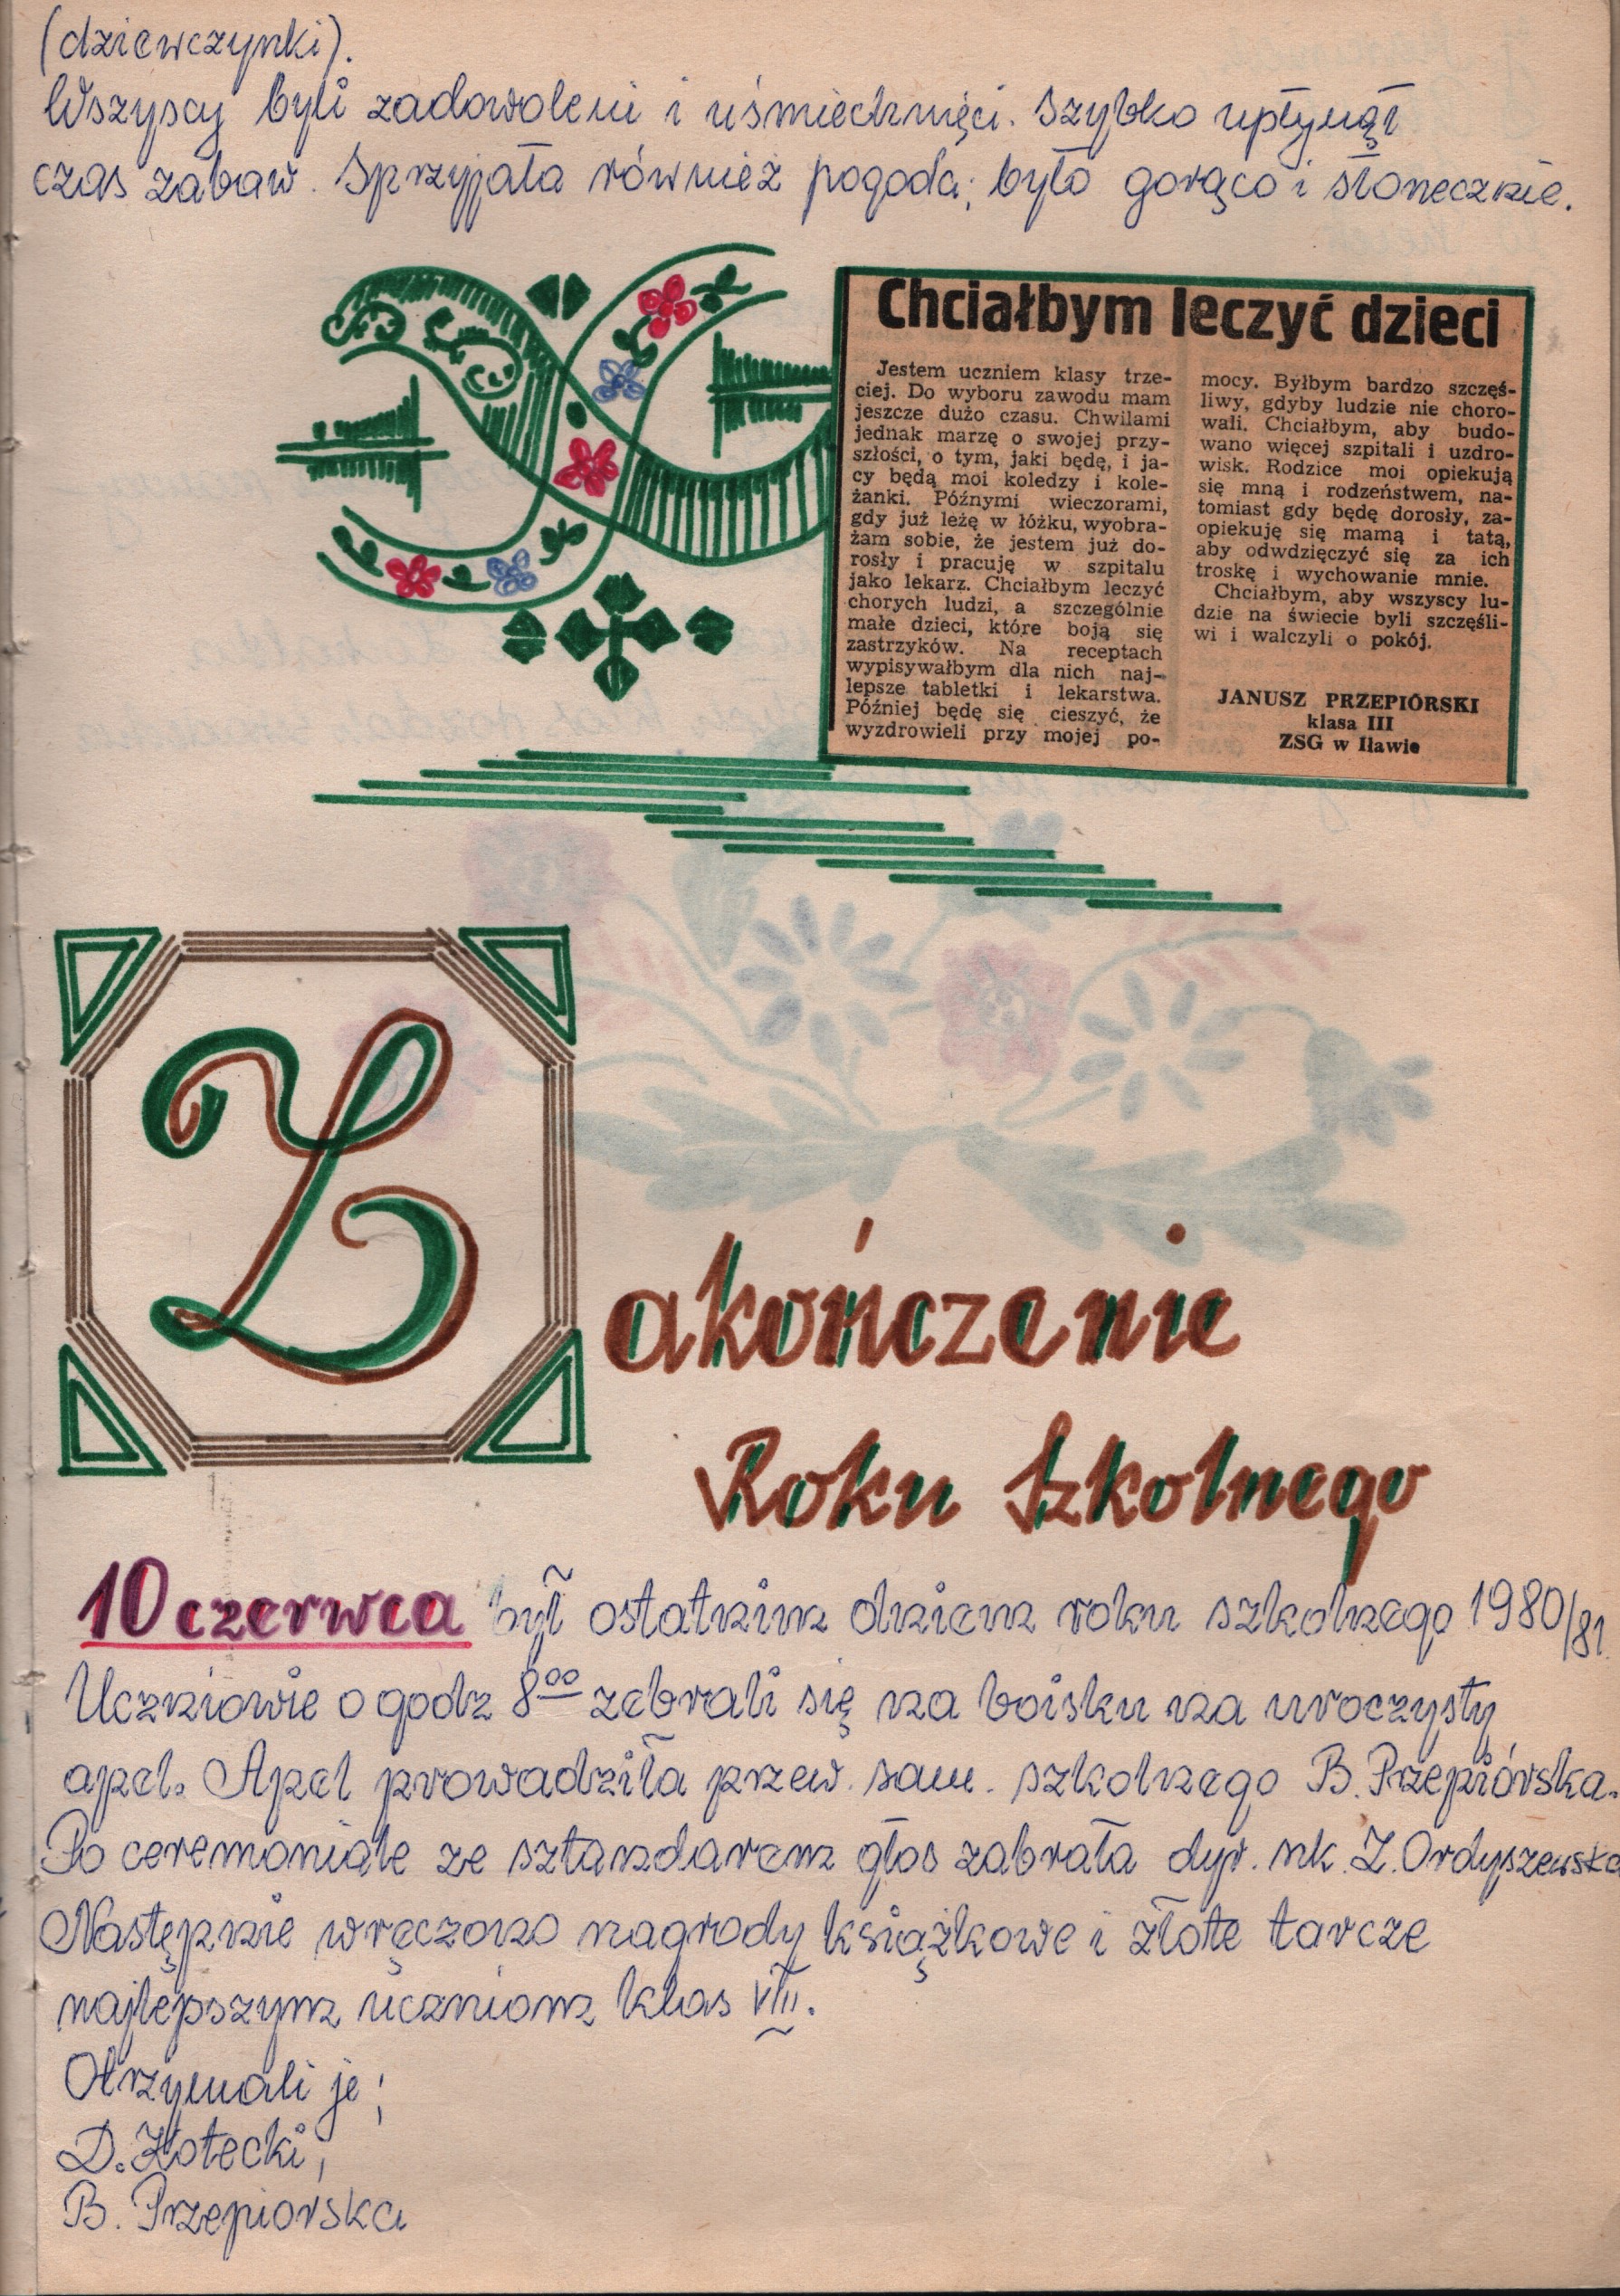 (dziewczynki).
Wszyscy byli zadowoleni i uśmiechnięci. Szybko upłynął
czas zabaw. Sprzyjała również pogoda; było gorąco i słonecznie.
Chciałbym leczyć dzieci
Jestem uczniem klasy trze-
ciej. Do wyboru zawodu mam
jeszcze dużo czasu. Chwilami
jednak marzę o swojej przy-
szłości, o tym, jaki będę, i ja-
cy będą moi koledzy i kole-
żanki. Późnymi wieczorami,
gdy już leżę w łóżku, wyobra-
żam sobie, że jestem już do-
rosły i pracuję w szpitalu
jako lekarz. Chciałbym leczyć
chorych ludzi, a szczególnie
małe dzieci, które boją się
zastrzyków. Na receptach
wypisywałbym dla nich naj-
lepsze tabletki i lekarstwa.
Później będę się cieszyć, że
wyzdrowieli przy mojej po-
mocy. Byłbym bardzo szczęś-
liwy, gdyby ludzie nie choro-
wali. Chciałbym, aby budo-
wano więcej szpitali i uzdro-
wisk. Rodzice moi opiekują
się mną i rodzeństwem, na-
tomiast gdy będę dorosły, za-
opiekuję się mamą i tatą,
aby odwdzięczyć się za ich
troskę i wychowanie mnie.
Chciałbym, aby wszyscy lu-
dzie na świecie byli szczęśli-
wi i walczyli o pokój.
JANUSZ PRZEPIÓRSKI
klasa III
ZSG w Iławie
Zakończenie
Roku Szkolnego
10 czerwca był ostatnim dniem roku szkolnego 1980/81.
Uczniowie o godz 8⁰⁰ zebrali się na boisku na uroczysty
apel. Apel prowadziła przew. sam. szkolnego B. Przepiórska.
Po ceremoniale ze sztandarem głos zabrała dyr. szk. Z. Ordyszewska
Następnie wręczono nagrody książkowe i złote tarcze
najlepszym uczniom klas VIII.
Otrzymali je;
D. Złotecki,
B. Przepiorska